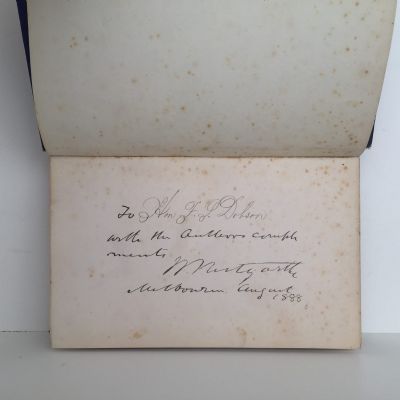 To Hon F. S. Dobson
with the Authors compli
ments
W Westgarth
Melbourne, August
1888